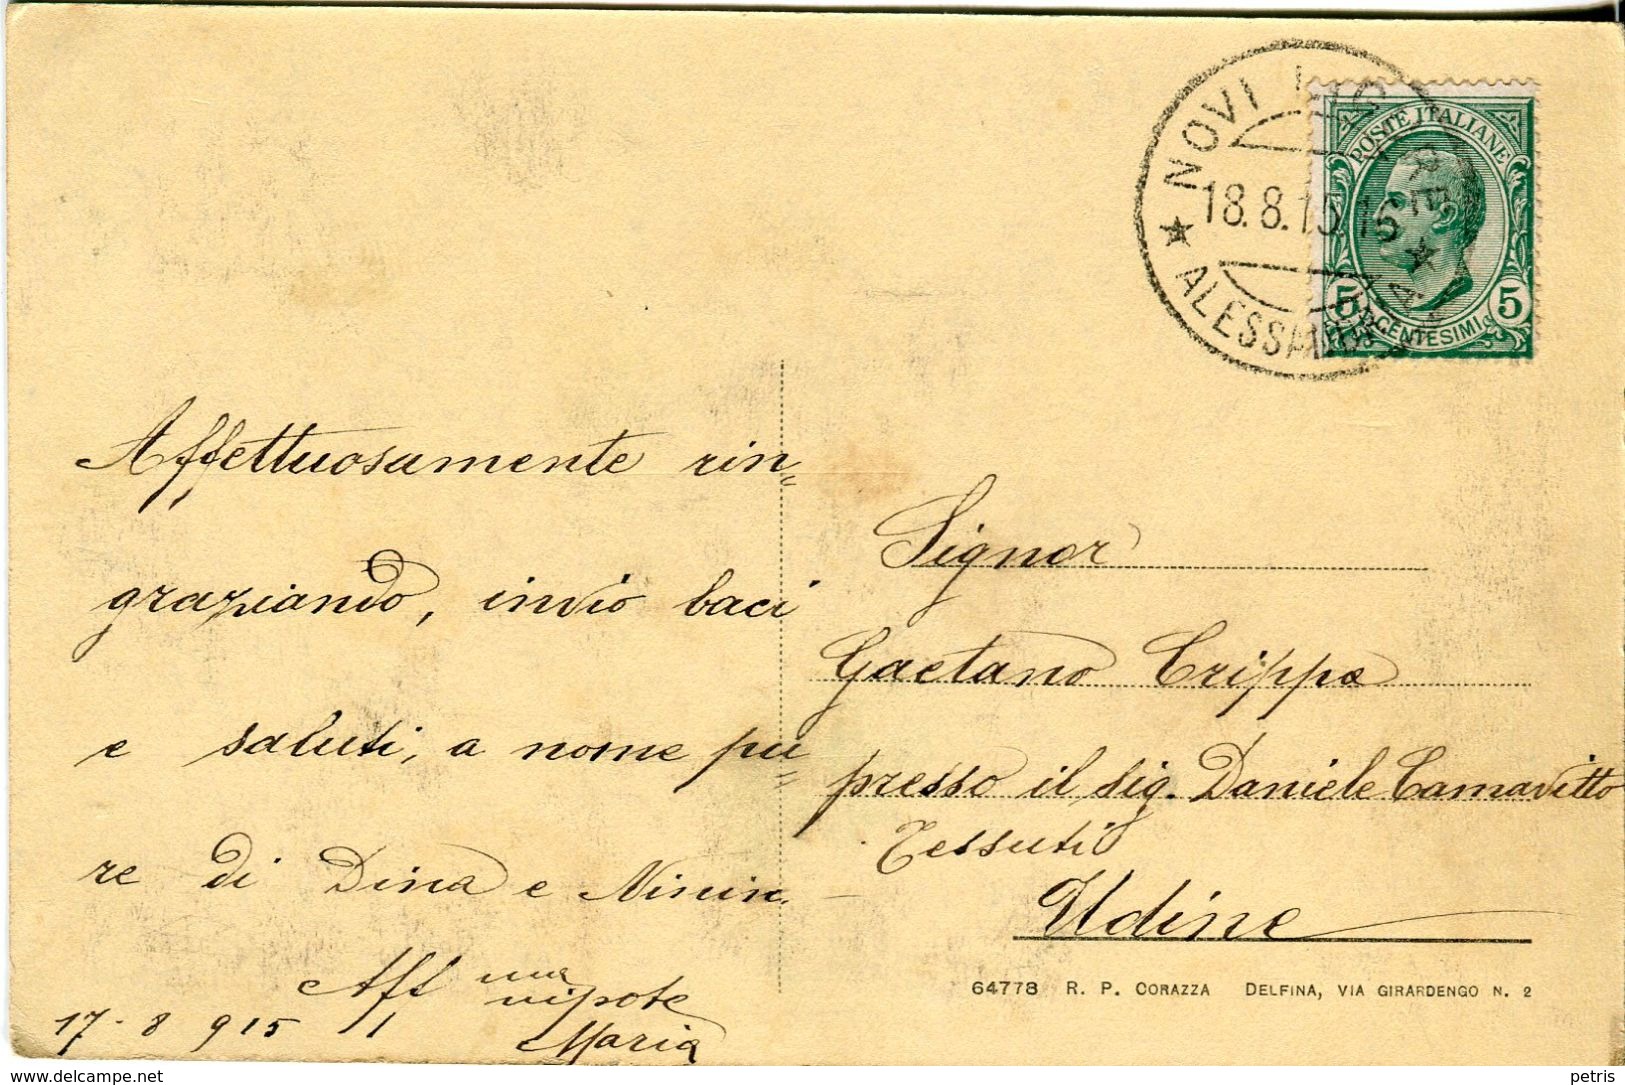 NOVI LIGURE
18.8.15.16
★ ALESSANDRIA ★
POSTE ITALIANE
5 CENTESIMI 5
Affettuosamente rin=
graziando, invio baci
e saluti, a nome pu=
re di Dina e Ninin.
Aff ma nipote
Maria
17-8 915
Signor
Gaetano Crippa
presso il sig. Daniele Camavitto
Tessuti
Udine
64778 R. P. CORAZZA DELFINA, VIA GIRARDENGO N. 2
www.delcampe.net
petris